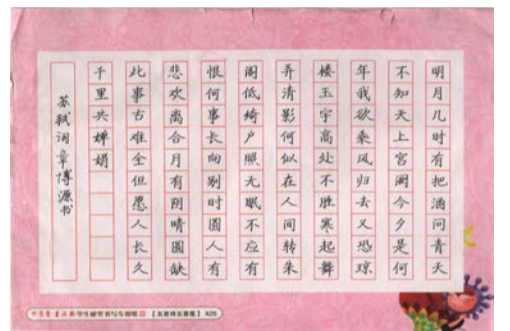 明月几时有把酒问青天
不知天上宫阙今夕是何
年我欲乘风归去又恐琼
楼玉宇高处不胜寒起舞
弄清影何似在人间转朱
阁低绮户照无眠不应有
恨何事长向别时圆人有
悲欢离合月有阴晴圆缺
此事古难全但愿人长久
千里共婵娟
苏轼词章博源书
学生硬笔书写专用纸